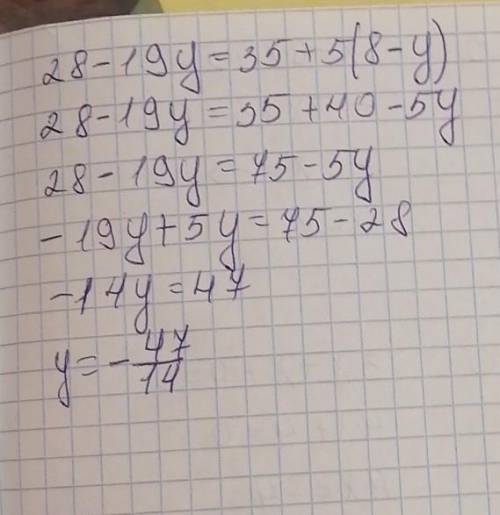 28-19y=35+5(8-y)
28-19y=35+40-5y
28-19y=75-5y
-19y+5y=75-28
-14y=47
y=-47/14